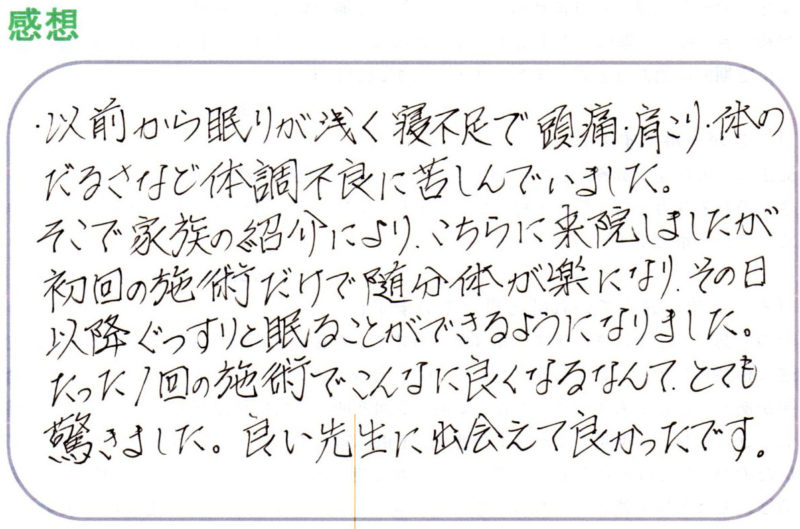 感想
・以前から眠りが浅く寝不足で頭痛・肩こり・体の
だるさなど体調不良に苦しんでいました。
そこで家族の紹介により、こちらに来院しましたが
初回の施術だけで随分体が楽になり、その日
以降ぐっすりと眠ることができるようになりました。
たった1回の施術でこんなに良くなるなんて、とても
驚きました。良い先生に出会えて良かったです。